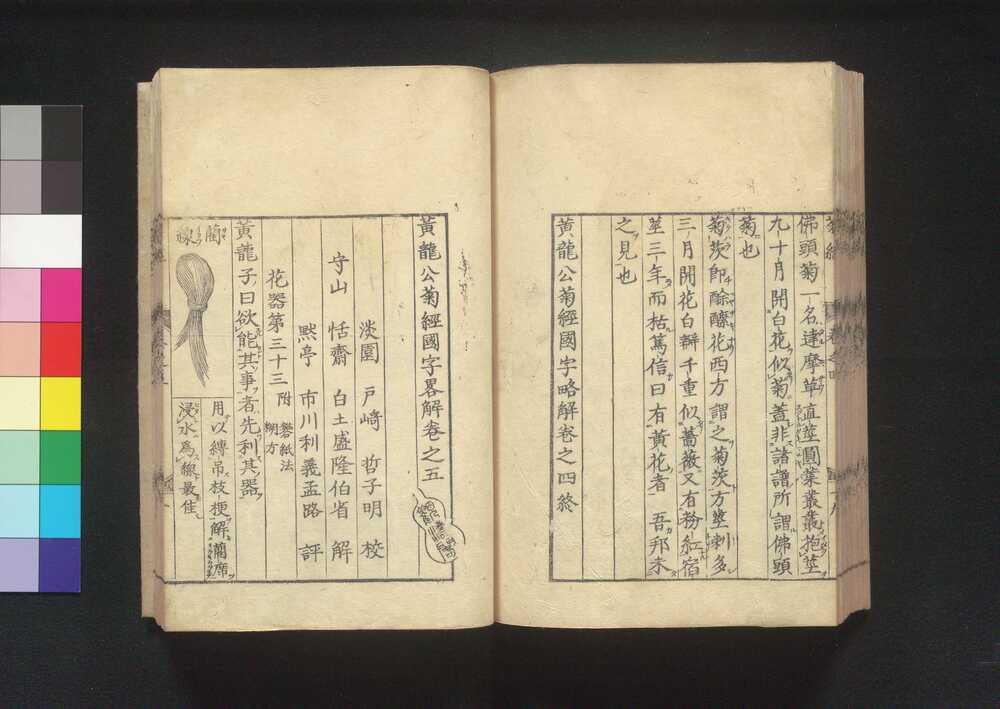 佛頭菊一名達摩草直莖圓葉叢叢抱莖
九十月開白花似菊蓋非諸譜所謂佛頭
菊也
菊茨即酴醿花西方謂之菊茨方莖刺多
三月開花白瓣千重似薔薇又有粉紅宿
莖三年而枯篤信曰有黃花者吾邦未
之見也
黄龍公菊經國字略解卷之四終
黃龍公菊經國字畧解卷之五
淡園 戸﨑 哲子明 校
守山 恬齋 白土盛隆伯省 解
黙亭 市川利義孟路 評
花器第三十三 附 礬紙法 糊方
黄龍子曰欲能其事者先利其器
藺線
用以縛吊枝梗解藺席
浸水為線最佳